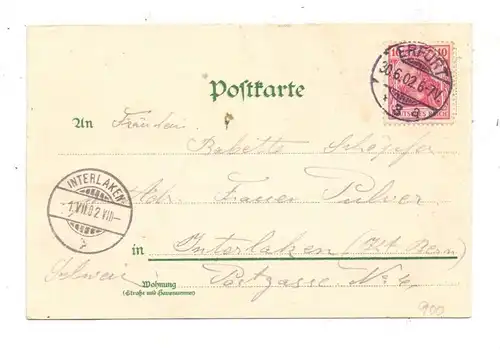 10 10
DEUTSCHES REICH
ERFURT
30.6.02.6-7N.
* 3 g
Postkarte
An Fräulein
Babette Schöpfer
Adr. Frauen Pulver
INTERLAKEN
1.VII.02.VIII–
in Interlaken (Kt. Bern)
Schweiz
Wohnung
(Straße und Hausnummer)
Postgasse No 4
900